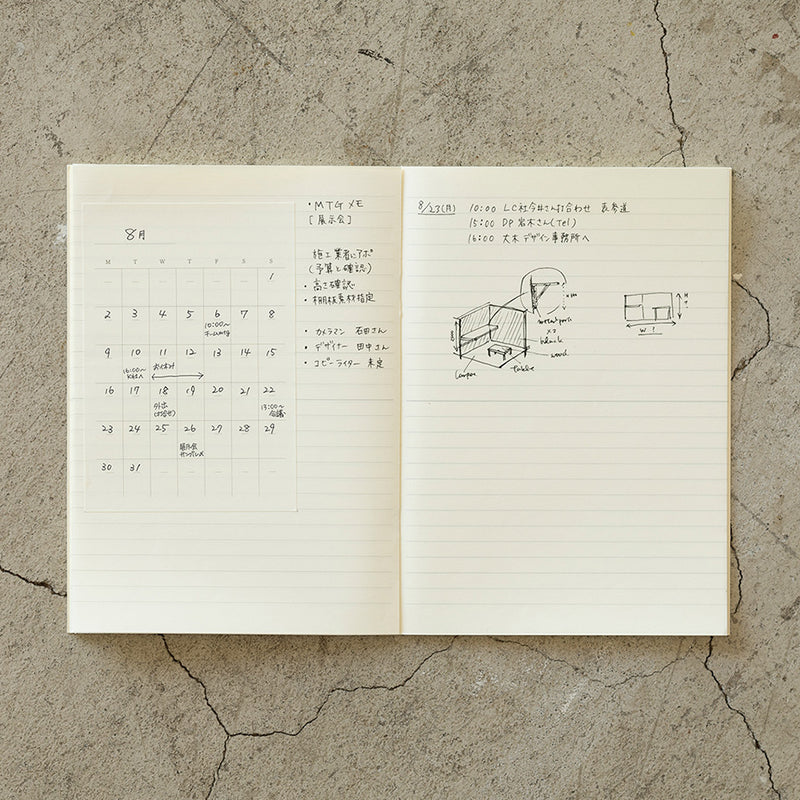 8月
M T W T F S S
1
2 3 4 5 6 7 8
10:00〜
9 10 11 12 13 14 15
16:00〜 お休み
16 17 18 19 20 21 22
外出 13:00〜
会議
23 24 25 26 27 28 29
展示会
30 31
・MTGメモ
[展示会]
施工業者にアポ
(予算と確認)
・高さ確認
・棚板素材指定
・カメラマン 石田さん
・デザイナー 田中さん
・コピーライター 未定
8/23(月) 10:00 LC社今井さん打合わせ 表参道
15:00 DP 岩木さん(Tel)
16:00 大木デザイン事務所へ
H?
W?
x3
black
wood
table